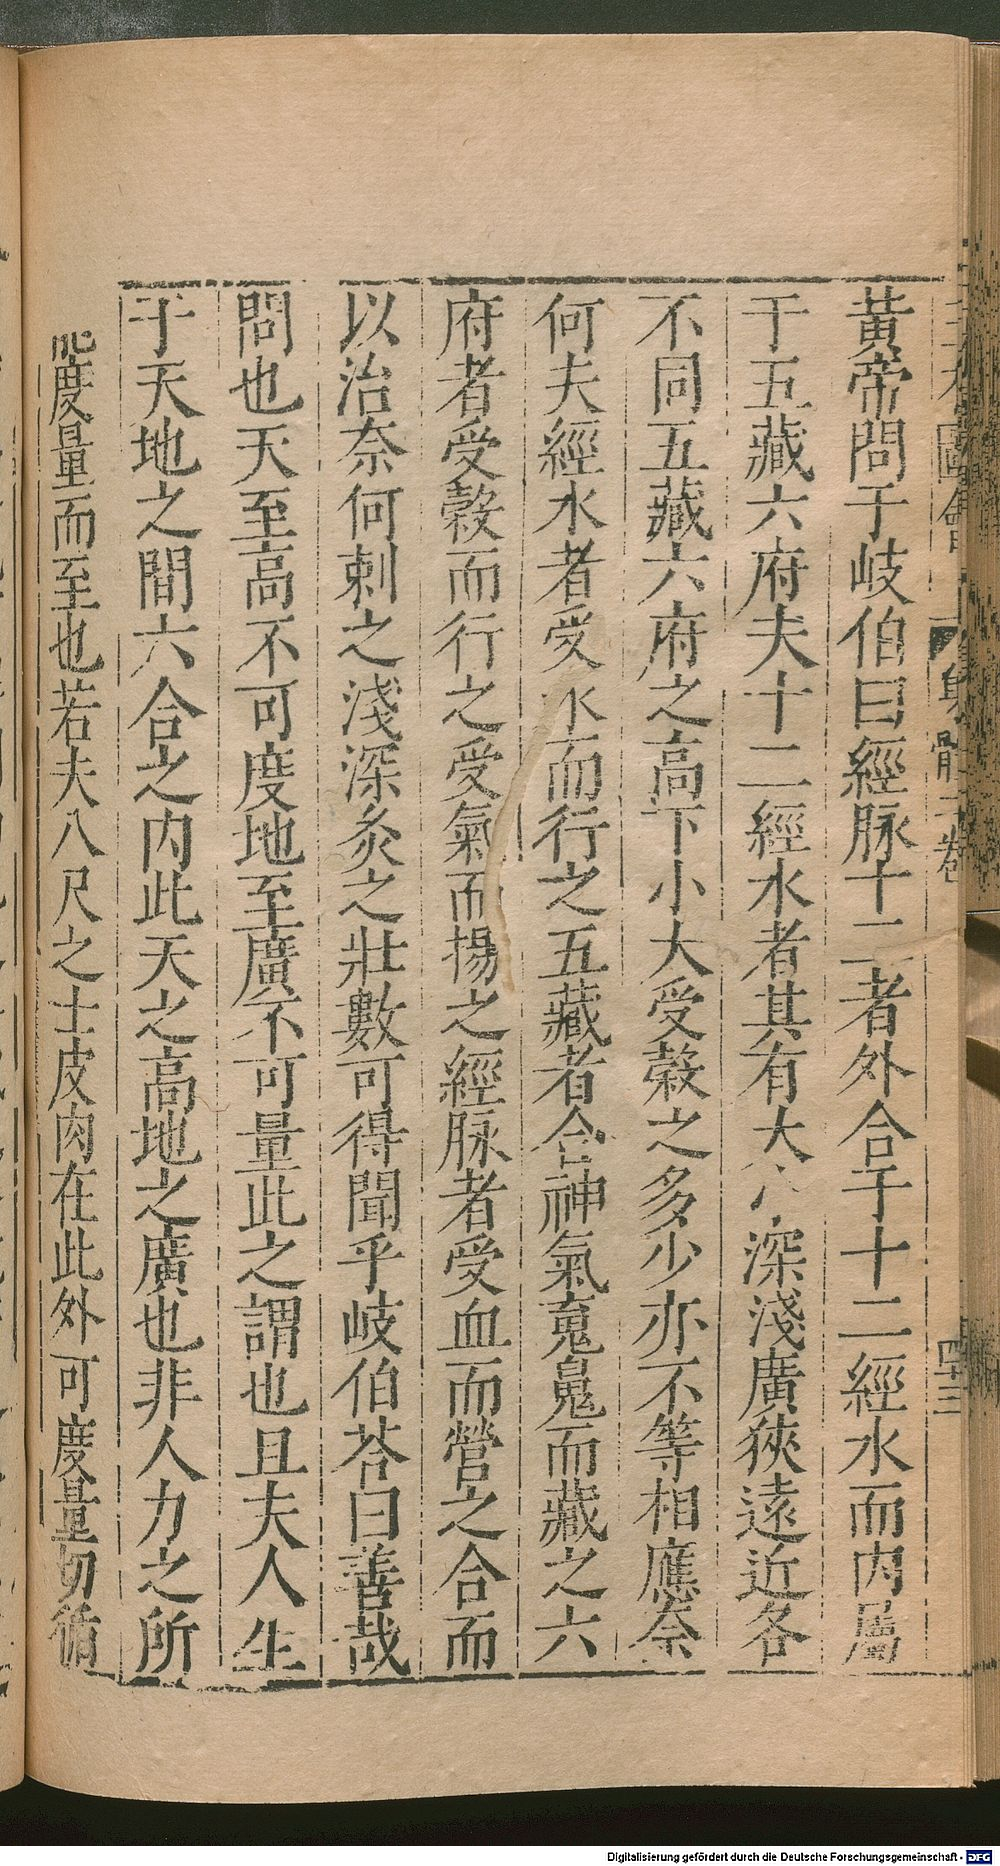 三才圖會 身體二卷 四十三
黃帝問于岐伯曰經脉十二者外合于十二經水而内屬
于五藏六府夫十二經水者其有大小深淺廣狹遠近各
不同五藏六府之高下小大受穀之多少亦不等相應奈
何夫經水者受水而行之五藏者合神氣䰟鬼而藏之六
府者受穀而行之受氣而揚之經脉者受血而營之合而
以治奈何刺之淺深灸之壯數可得聞乎岐伯荅曰善哉
問也天至高不可度地至廣不可量此之謂也且夫人生
于天地之間六合之内此天之高地之廣也非人力之所
能度量而至也若夫八尺之士皮肉在此外可度量切循
Digitalisierung gefördert durch die Deutsche Forschungsgemeinschaft - DFG